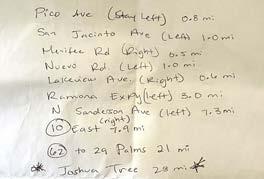 Pico Ave (Stay Left) 0.8 mi
San Jacinto Ave (Left) 1.0 mi
Menifee Rd (Right) 0.5 mi
Nuevo Rd. (Left) 1.0 mi
Lakeview Ave. (Right) 0.6 mi
Ramona Expy (Left) 3.0 mi
N Sanderson Ave (left) 7.3 mi
(right)
10 East 7.9 mi
62 to 29 Palms 21 mi
* Joshua Tree 28 mi *